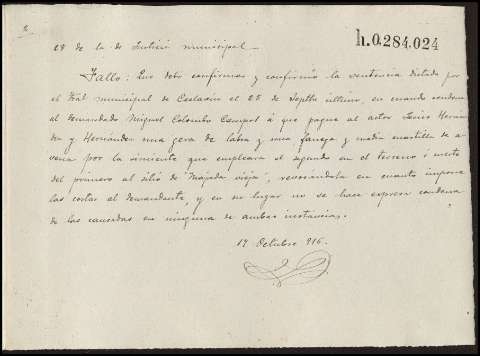 2
h.0.284.024
29 de la de Justicia municipal.
Fallo: Que debo confirmar y confirmo la sentencia dictada por
el Tral municipal de Ceclavín el 25 de Septbe último, en cuanto condena
al demandado Miguel Colombo Campol á que pague al actor Javier Hernán
dez y Hernández una gera de labor y una fanega y media cuartilla de a-
vena por la simiente que empleara el segundo en el terreno
del primero al sitio de "Majada vieja", revocándola en cuanto impone
las costas al demandante, y en su lugar no se hace expresa condena
de las causadas en ninguna de ambas instancias.
19 Octubre 916.